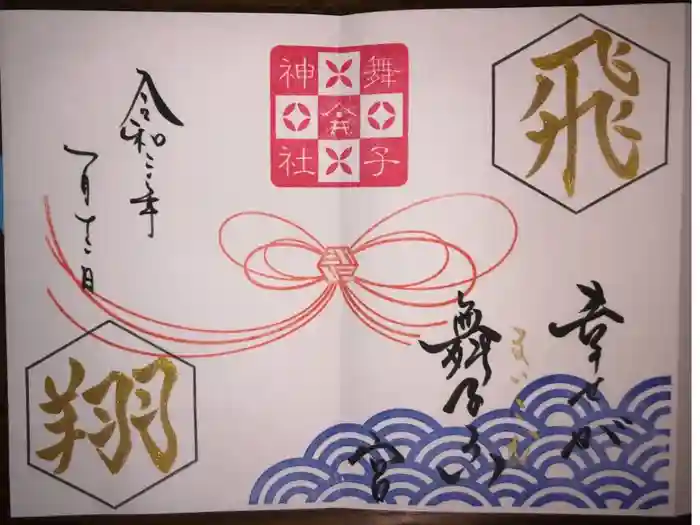 飛
幸せが
まいこむ
舞子る
宮
舞子
神社
令和三年
一月十三日
翔